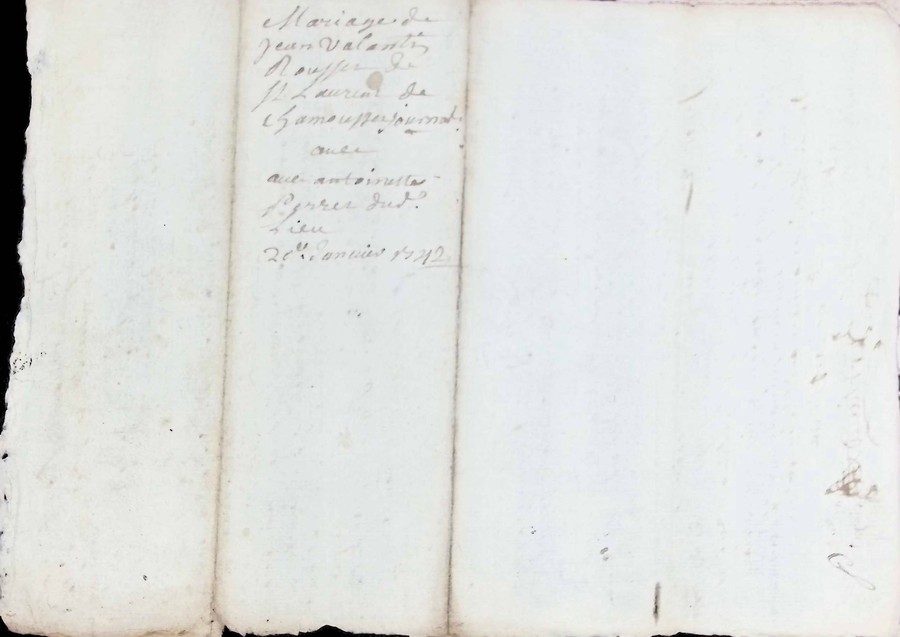 Mariage de
Jean Valantin
Rousset de
St Laurent de
Chamousset journal.
avec
avec antoinette
Perret dud.
Lieu
Janvier 1742